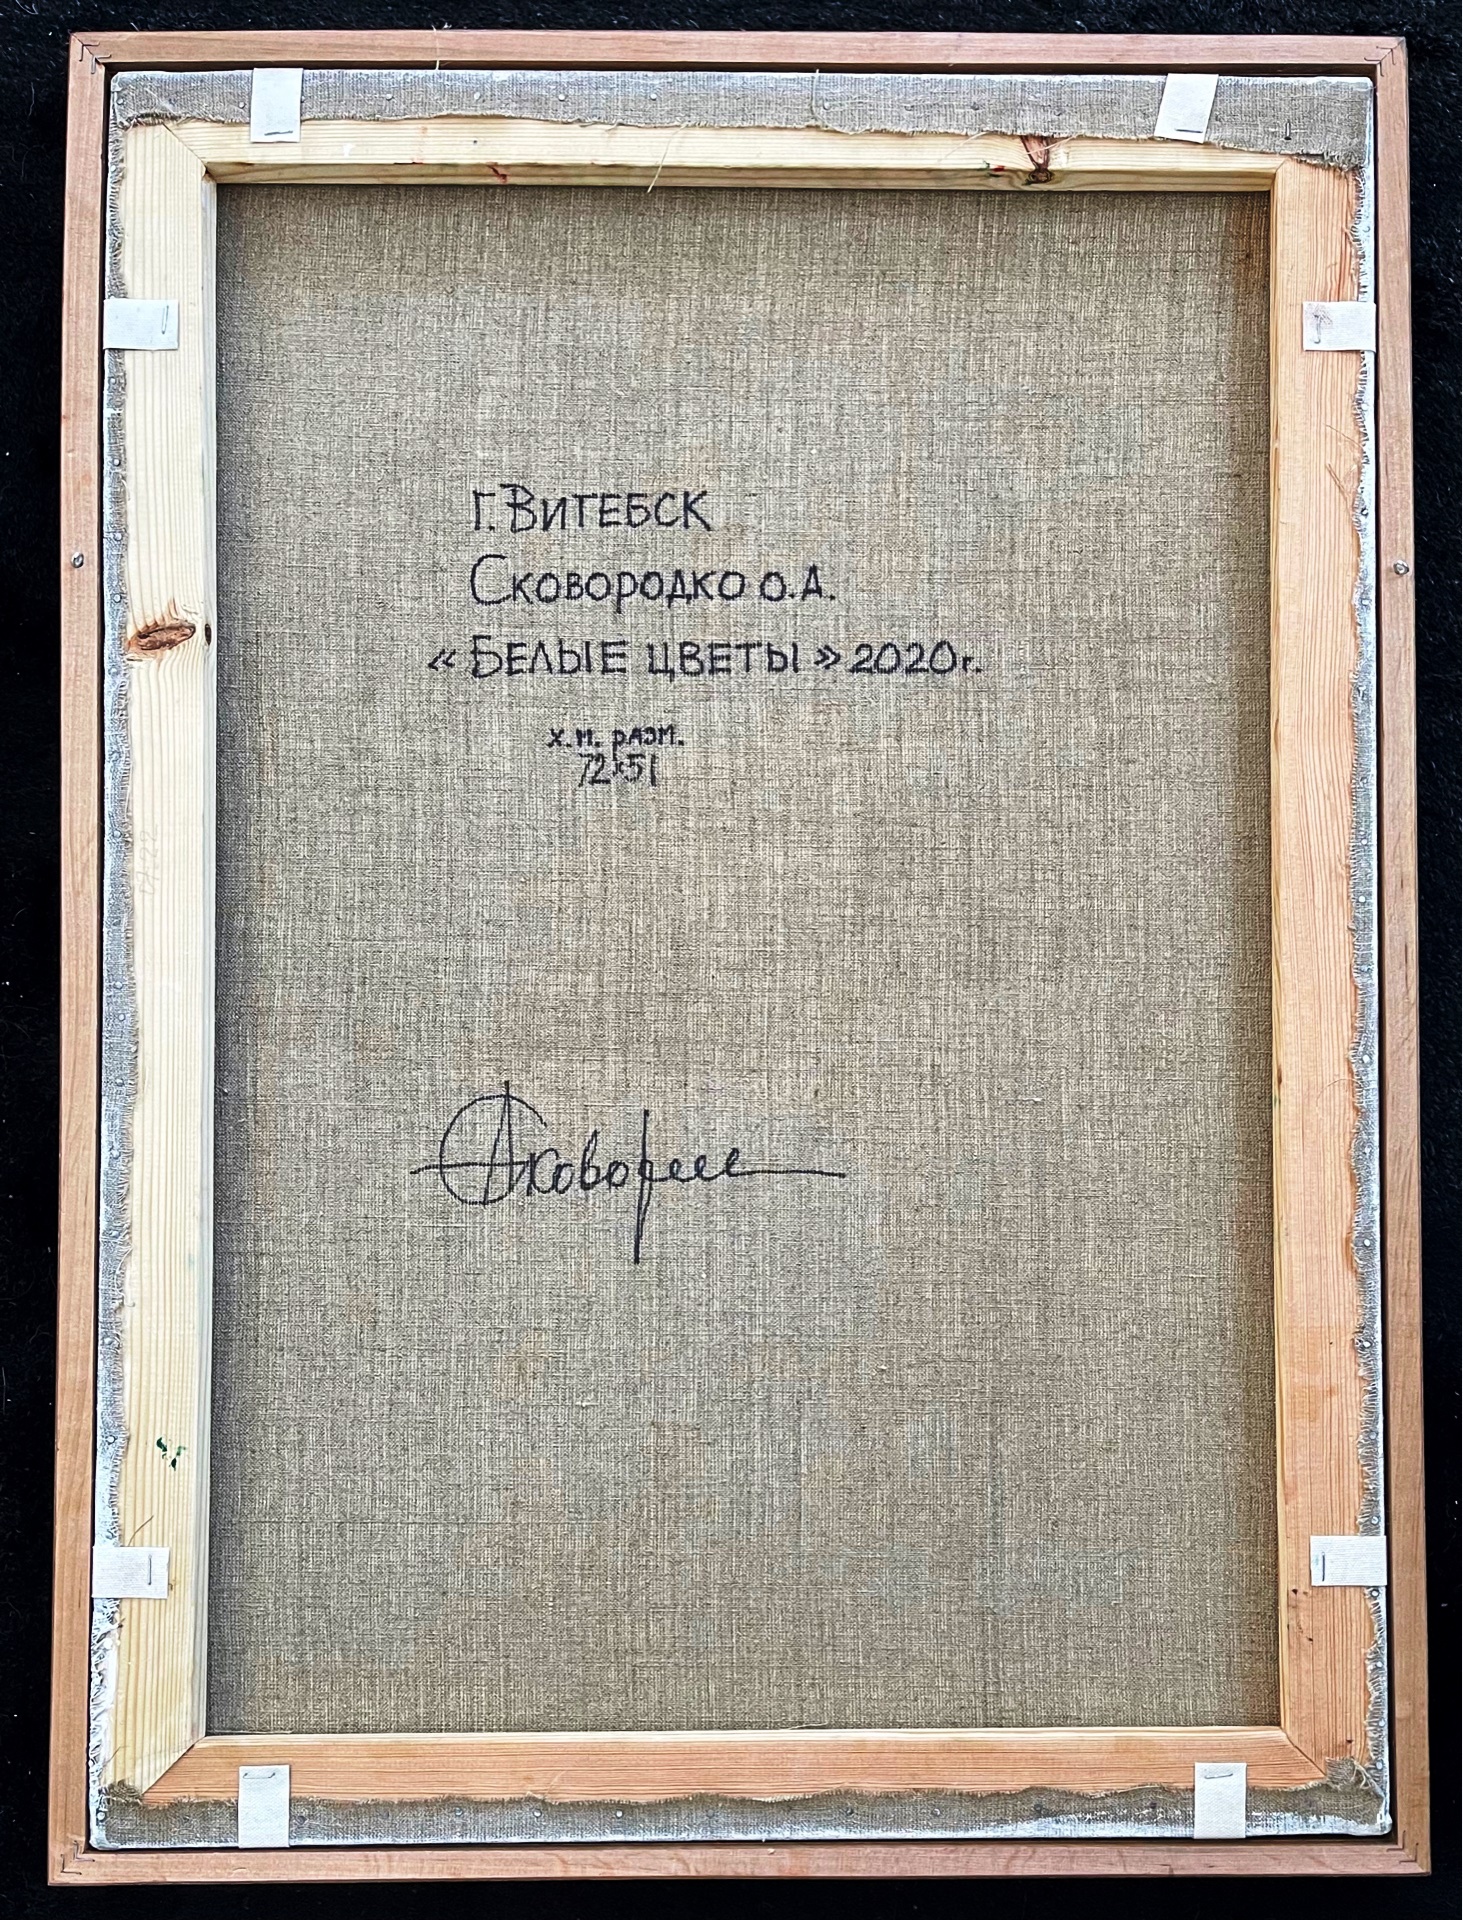 г. Витебск
Сковородко О.А.
«Белые цветы» 2020г.
х.м. разм.
72x51